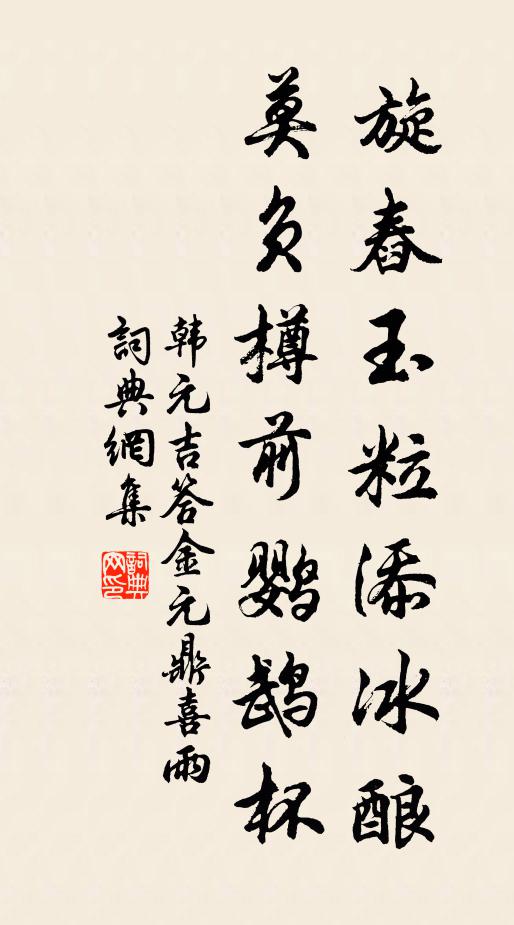 旋舂玉粒添冰酿
莫负樽前鹦鹉杯
韩元吉答金元鼎喜雨
詞典網集
詞典
网印